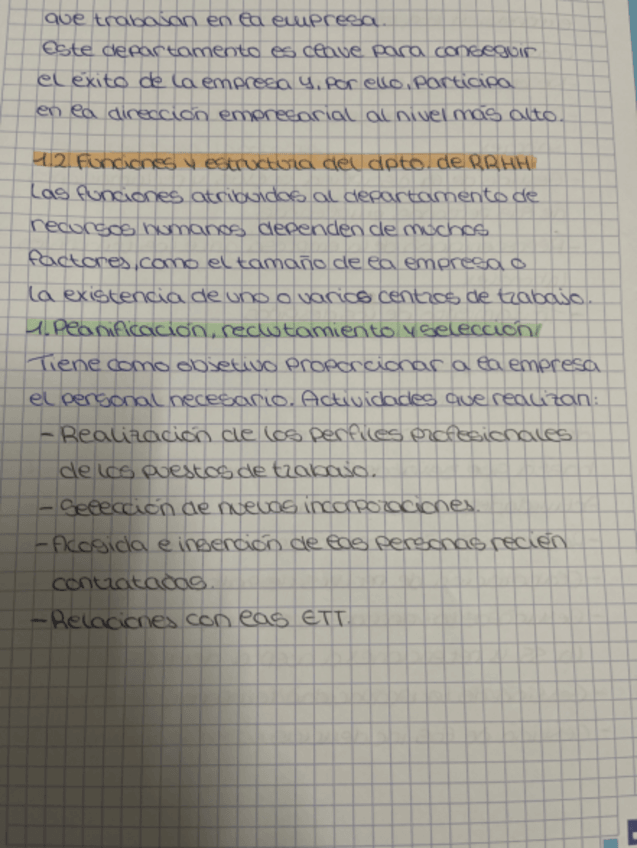 que trabajan en la empresa.
Este departamento es clave para conseguir
el éxito de la empresa y, por ello, participa
en la dirección empresarial al nivel más alto.
1.2 Funciones y estructura del dpto. de RRHH
Las funciones atribuidas al departamento de
recursos humanos dependen de muchos
factores, como el tamaño de la empresa o
la existencia de uno o varios centros de trabajo.
1. Planificación, reclutamiento y selección
Tiene como objetivo proporcionar a la empresa
el personal necesario. Actividades que realizan:
- Realización de los perfiles profesionales
de los puestos de trabajo.
- Selección de nuevas incorporaciones.
- Acogida e inserción de las personas recién
contratadas.
- Relaciones con las ETT.